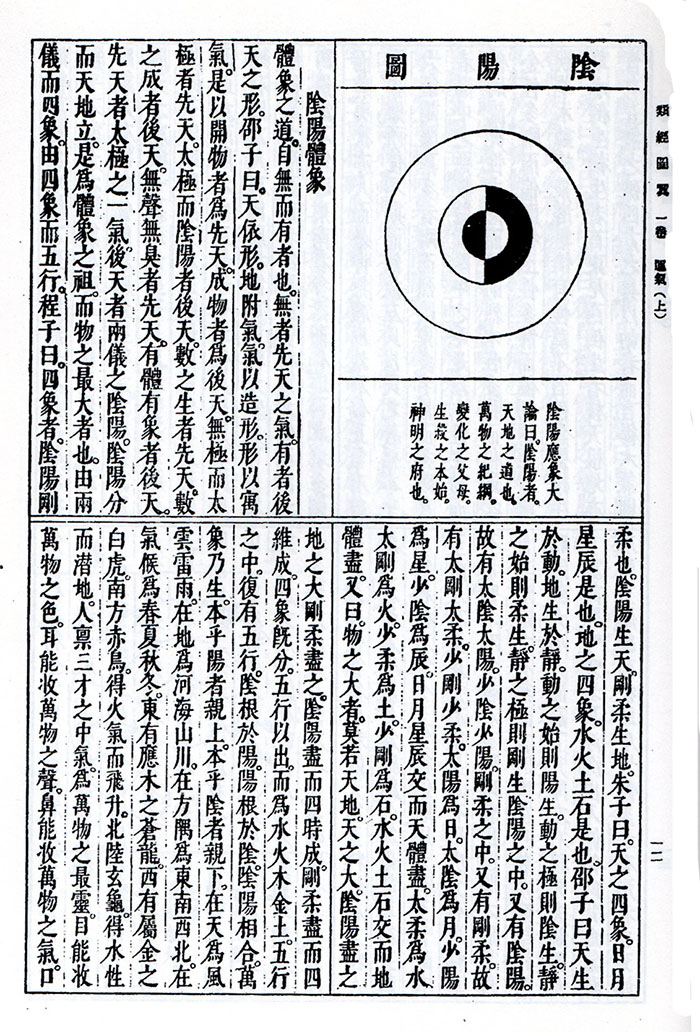 類經圖翼 一卷 運氣(上)
一二
陰陽圖
陰陽應象大
論曰。陰陽者。
天地之道也。
萬物之紀綱。
變化之父母。
生殺之本始。
神明之府也。
陰陽體象
體象之道。自無而有者也。無者先天之氣。有者後
天之形。邵子曰。天依形。地附氣。氣以造形。形以寓
氣。是以開物者為先天。成物者為後天。無極而太
極者先天。太極而陰陽者後天。數之生者先天。數
之成者後天。無聲無臭者先天。有體有象者後天。
先天者太極之一氣。後天者兩儀之陰陽。陰陽分
而天地立。是為體象之祖。而物之最大者也。由兩
儀而四象。由四象而五行。程子曰。四象者。陰陽剛
柔也。陰陽生天。剛柔生地。朱子曰。天之四象。日月
星辰是也。地之四象。水火土石是也。邵子曰天生
於動。地生於靜。動之始則陽生。動之極則陰生。靜
之始則柔生。靜之極則剛生。陰陽之中。又有陰陽。
故有太陰太陽。少陰少陽。剛柔之中。又有剛柔。故
有太剛太柔。少剛少柔。太陽為日。太陰為月。少陽
為星。少陰為辰。日月星辰交而天體盡。太柔為水
太剛為火。少柔為土。少剛為石。水火土石交而地
體盡。又曰。物之大者。莫若天地。天之大。陰陽盡之
地之大剛柔盡之。陰陽盡而四時成。剛柔盡而四
維成。四象既分。五行以出。而為水火木金土。五行
之中。復有五行。陰根於陽。陽根於陰。陰陽相合。萬
象乃生。本乎陽者親上。本乎陰者親下。在天為風
雲雷雨。在地為河海山川。在方隅為東南西北。在
氣候為春夏秋冬。東有應木之蒼龍。西有屬金之
白虎。南方赤鳥。得火氣而飛升。北陸玄龜。得水性
而潛地。人禀三才之中氣。為萬物之最靈。目能收
萬物之色。耳能收萬物之聲。鼻能收萬物之氣。口